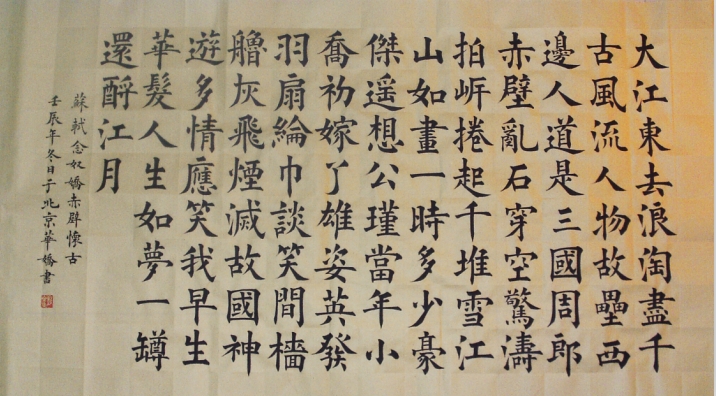 大江東去浪淘盡千
古風流人物故壘西
邊人道是三國周郎
赤壁亂石穿空驚濤
拍岍捲起千堆雪江
山如畫一時多少豪
傑遥想公瑾當年小
喬初嫁了雄姿英發
羽扇綸巾談笑間檣
艣灰飛煙滅故國神
遊多情應笑我早生
華髮人生如夢一罇
還酹江月
蘇軾念奴嬌赤壁懷古
壬辰年冬日于北京華嬌書